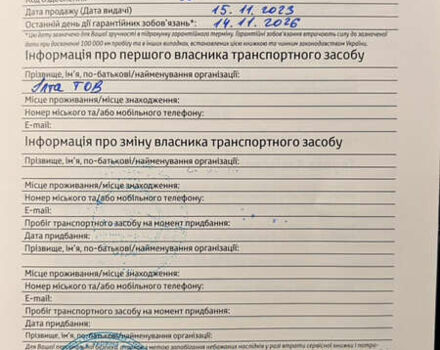 Дата продажу (Дата видачі) 15.11.2023
Останній день дії гарантійних зобов'язань*: 14.11.2026
*Цю дату зазначено для Вашої зручності в підрахунку гарантійного терміну. Гарантійні зобов'язання втрачають силу до зазначеної
дати при досяганні 100 000 км пробігу та в інших випадках, встановлених цією книжкою та чинним законодавством України.
Інформація про першого власника транспортного засобу
Прізвище, ім'я, по-батькові/найменування організації:
Ілта ТОВ
Місце проживання/місце знаходження:
Номер міського та/або мобільного телефону:
E-mail:
Інформація про зміну власника транспортного засобу
Прізвище, ім'я, по-батькові/найменування організації:
Місце проживання/місце знаходження:
Номер міського та/або мобільного телефону:
E-mail:
Пробіг транспортного засобу на момент придбання:
Дата придбання:
Прізвище, ім'я, по-батькові/найменування організації:
Місце проживання/місце знаходження:
Номер міського та/або мобільного телефону:
E-mail:
Пробіг транспортного засобу на момент придбання:
Дата придбання:
Прізвище, ім'я, по-батькові/найменування організації:
Для Вашої метою запобігання небажаних наслідків у разі втрати сервісної книжки і потра-